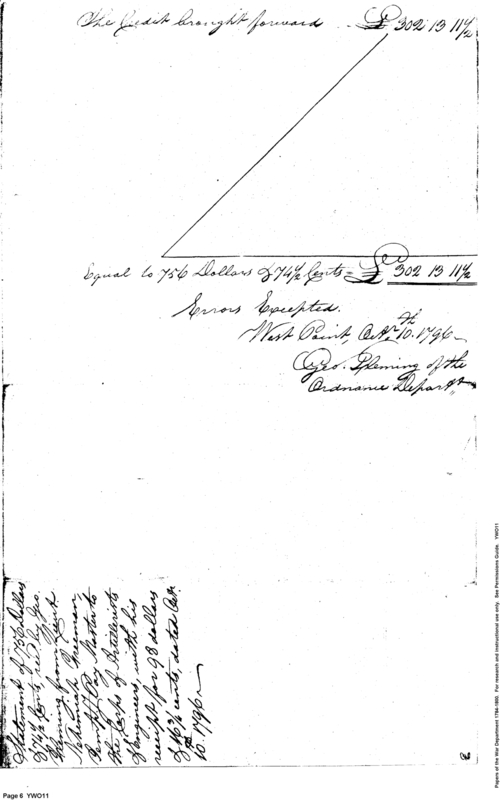 The Credit brought forward £ 302 13 11½
Equal to 756 Dollars & 74½ Cents = £ 302 13 11½
Errors Excepted.
West Point, Octr. 10th. 1796
Geo. Fleming of the
Ordnance Departt.
Statement of 756 Dollars
& 74½ Cents, recd by Geo.
Fleming from
Freeman,
Pay Master to
the Corps of Artillerists
& Engineers, with his
receipt for 98 dollars
& 16½ cents, dated Octr.
10. 1796
Page 6 YWO11
Papers of the War Department 1784-1800. For research and instructional use only. See Permissions Guide. YWO11